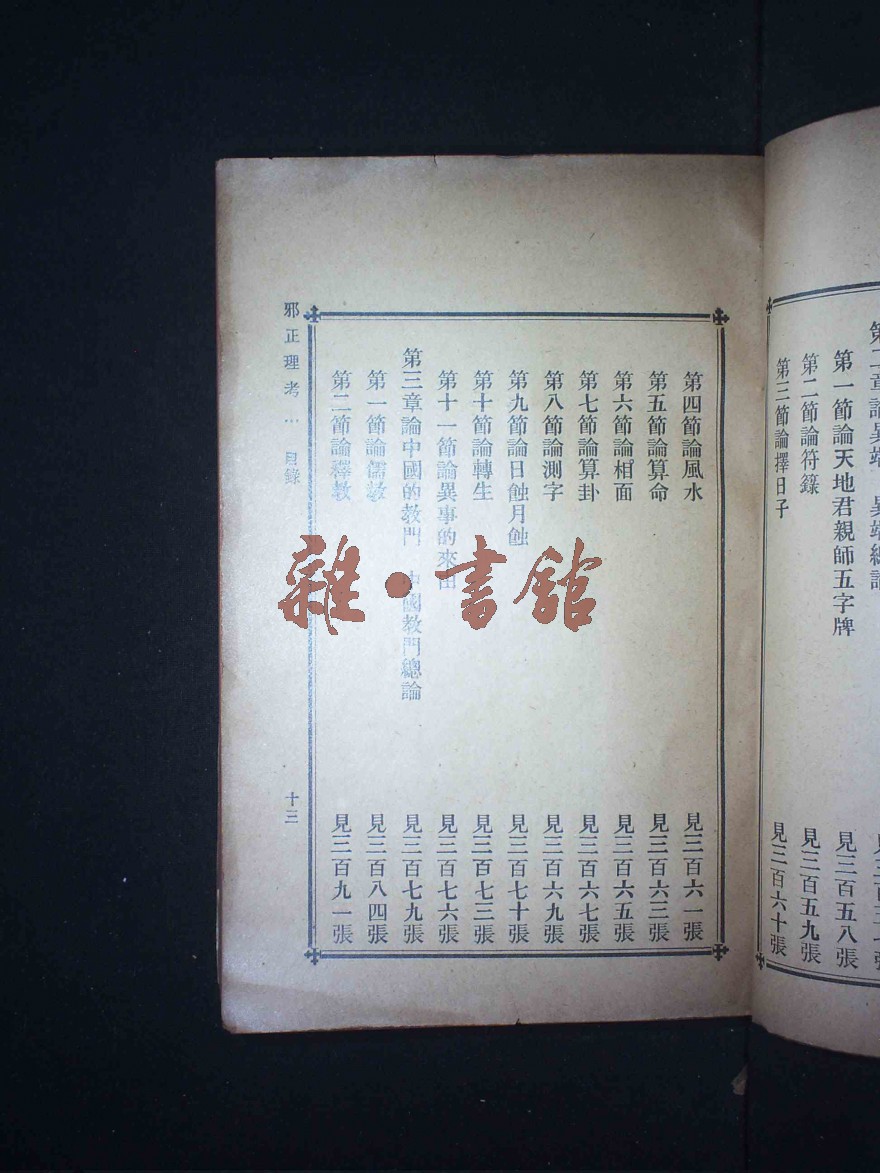 第一節論天地君親師五字牌 見三百五八張
第二節論符籙 見三百五九張
第三節論擇日子 見三百六十張
第四節論風水 見三百六一張
第五節論算命 見三百六三張
第六節論相面 見三百六五張
第七節論算卦 見三百六七張
第八節論測字 見三百六九張
第九節論日蝕月蝕 見三百七十張
第十節論轉生 見三百七三張
第十一節論異事的來由 見三百七六張
第三章論中國的教門 中國教門總論 見三百七九張
第一節論儒教 見三百八四張
第二節論釋教 見三百九一張
邪正理考 … 目錄 十三
雜·書館